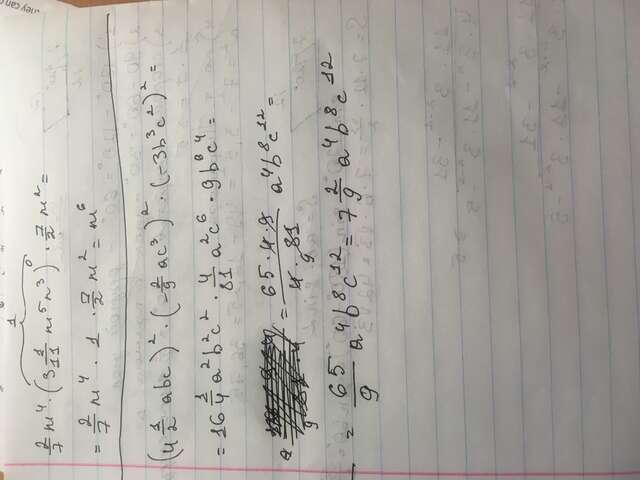 hey can
1
2/7 m⁴ · (3 1/11 m⁵n³)⁰ · 7/2 m² =
= 2/7 m⁴ · 1 · 7/2 m² = m⁶
(4 1/2 abc)² · (-2/9 ac³)² · (-3b³c²)² =
= 16 1/4 a²b²c² · 4/81 a²c⁶ · 9b⁶c⁴ =
= 65·4·9/4·81 a⁴b⁸c¹² =
9
= 65/9 a⁴b⁸c¹² = 7 2/9 a⁴b⁸c¹²